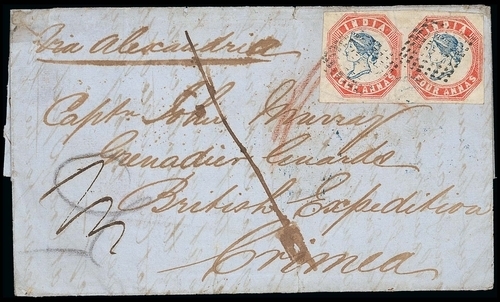 INDIA INDIA
FOUR ANNAS FOUR ANNAS
Via Alexandria
Captn John Murray
Grenadier Guards
British Expedition
Crimea